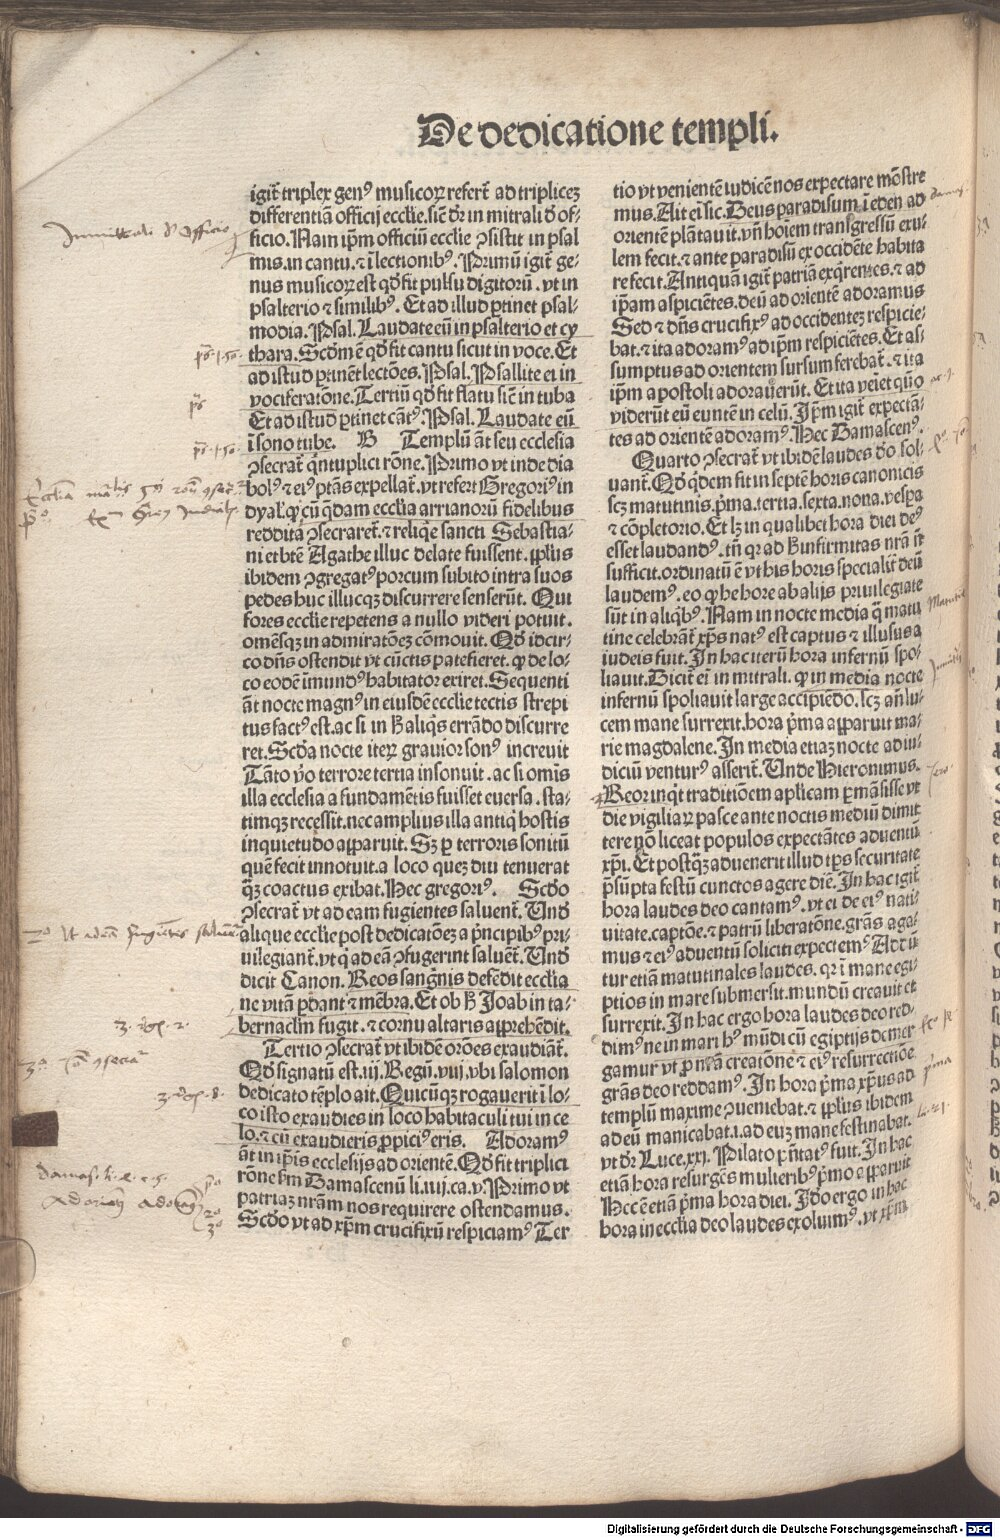 De dedicatione templi.
igit̃ triplex genꝰ musicoꝝ refert̃ ad triplicez
differentiã officij ecclie. sič dr̃ in mitrali d̓ of⸗
ficio. Nam ip̃m officiũ ecclie ↄsistit in psal
mis. in cantu. ⁊ ĩ lectionibꝰ. Primũ igit̃ ge⸗
nus musicoꝝ est qd̓ fit pulsu digitorũ. vt in
psalterio ⁊ similibꝰ. Et ad illud ꝑtinet psal⸗
modia. Psal. Laudate eũ in psalterio et cy
thara. Scd̓m ẽ qd̓ fit cantu sicut in voce. Et
ad istud ꝑtinẽt lectões. Psal. Psallite ei in
vociferatõne. Tertiũ qd̓ fit flatu sič in tuba
Et ad istud ꝑtinet cãtꝰ. Psal. Laudate eũ
ĩ sono tube. B Templũ ãt seu ecclesia
ↄsecrat̃ qntuplici rõne. Primo vt inde dia
bolꝰ ⁊ eiꝰ ptãs expellat̃. vt refert Gregoriꝰ in
dyal̓. ꝙ cũ qdam ecclia arrianorũ fidelibus
reddita ↄsecraret̃. ⁊ reliq̃e sancti Sebastia⸗
ni et btẽ Agathe illuc delate fuissent. ppl̓us
ibidem ↄgregatꝰ porcum subito intra suos
pedes huc illucqꝫ discurrere senserũt. Qui
fores ecclie repetens a nullo videri potuit.
omẽsqꝫ in admiratõeꝫ cõmouit. Qd̓ idcir⸗
co dñs ostendit vt cũctis patefieret. ꝙ de lo⸗
co eodẽ ĩmundꝰ habitator exiret. Sequenti
ãt nocte magnꝰ in eiusdẽ ecclie tectis strepi
tus factꝰ est. ac si in h̓ aliqs errãdo discurre
ret. Scd̓a nocte iteꝝ grauior sonꝰ increuit
Tãto v̓o terrore tertia insonuit. ac si omĩs
illa ecclesia a fundamẽtis fuisset euersa. sta⸗
timqꝫ recessit. nec amplius illa antiq̃ hostis
inquietudo apparuit. Sꝫ ꝑ terroris sonitũ
quẽ fecit innotuit. a loco quez diu tenuerat
q̃ꝫ coactus exibat. Hec gregoriꝰ. Scd̓o
ↄsecrat̃ vt ad eam fugientes saluent̃. Und̓
alique ecclie post dedicatõeꝫ a p̃ncipibꝰ pri⸗
uilegiant̃. vt q̓ ad eã ↄfugerint saluẽt̃. Und̓
dicit Canon. Reos sang̃nis defẽdit ecclia
ne vitã ꝑdant ⁊ mẽbra. Et ob h̓ Joab in ta⸗
bernaclm̃ fugit. ⁊ cornu altaris apprehẽdit.
Tertio ↄsecrat̃ vt ibidẽ orões exaudiãt̃.
Qd̓ signatũ est. iij. Regũ. viij. vbi salomon
dedicato tẽplo ait. Quicũqꝫ rogauerit ĩ lo⸗
co isto exaudies in loco habitaculi tui in ce
lo. ⁊ cũ exaudieris ꝓpiciꝰ eris. Adoramꝰ
ãt in ip̃is ecclesijs ad orientẽ. Qd̓ fit triplici
rõne ẜm Damascenũ li. iiij. ca. v. Primo vt
patriaꝫ nrãm nos requirere ostendamus.
Scd̓o vt ad xp̃m crucifixũ respiciamꝰ Ter
tio vt venientẽ iudicẽ nos expectare mõstre
mus. Ait ei̓ sic. Deus paradisum ĩ eden ad
orientẽ plãtauit. vñ hoiem transgressũ exu⸗
lem fecit. ⁊ ante paradisũ ex occidẽte habita
re fecit. Antiquã igit̃ patriã exq̃rentes. ⁊ ad
ip̃am aspiciẽtes. deũ ad orientẽ adoramus
Sed ⁊ dñs crucifixꝰ ad occidenteꝫ respicie⸗
bat. ⁊ ita adoramꝰ ad ip̃m respiciẽtes. Et as⸗
sumptus ad orientem sursum ferebat̃. ⁊ ita
ip̃m apostoli adorauerũt. Et ita veiet quẽo
viderũt eũ euntẽ in celũ. Ip̃m igit̃ expectã⸗
tes ad orientẽ adoramꝰ. Hec Damascenꝰ.
Quarto ↄsecrat̃ vt ibidẽ laudes d̓o sol⸗
uant̃. Qd̓ qdem fit in septẽ horis canonicis
scꝫ matutinis. p̃ma. tertia. sexta. nona. vespa
⁊ cõpletorio. Et lꝫ in qualibet hora diei deꝰ
esset laudandꝰ. tñ qꝛ ad h̓ infirmitas nrã ñ
sufficit. ordinatũ ẽ vt his horis specialit̃ deũ
laudemꝰ. eo ꝙ he hore ab alijs priuilegiate
sũt in aliq̓bꝰ. Nam in nocte media q̃ matu
tine celebrãt̃ xp̃s natꝰ est captus ⁊ illusus a
iudeis fuit. In hac iterũ hora infernũ spo⸗
liauit. Dicit̃ ei̓ in mitrali. ꝙ in media nocte
infernũ spoliauit large accipiẽdo. scꝫ añ lu⸗
cem mane surrexit. hora p̃ma apparuit ma⸗
rie magdalene. In media etiaꝫ nocte ad iu⸗
diciũ venturꝰ asserit̃. Unde Hieronimus.
Reor inq̓t traditiõem aplicam ꝑmãsisse vt
die vigiliaꝝ pasce ante noctis mediũ dimit
tere nõ liceat populos expectãtes aduentũ
xp̃i. Et postq̃ꝫ aduenerit illud tp̃s securitate
p̃sũpta festũ cunctos agere diẽ. In hac igit̃
hora laudes deo cantamꝰ. vt ei de eiꝰ nati⸗
uitate. captõe. ⁊ patrũ liberatõne. grãs aga⸗
mus ⁊ eiꝰ aduentũ soliciti expectemꝰ Addũ
tur etiã matutinales laudes. qꝛ ĩ mane egi⸗
ptios in mare submersit. mundũ creauit et
surrexit. In hac ergo hora laudes deo red⸗
dimꝰ ne in mari hꝰ mũdi cũ egiptijs demer
gamur vt ꝓ nr̃a creatiõne ⁊ eiꝰ resurrectiõe
grãs deo reddamꝰ. In hora p̃ma xp̃us ad
templũ maxime ↄueniebat. ⁊ ppl̓us ibidem
ad eũ manicabat. i. ad euꝫ mane festinabat.
vt dr̃ Luce. xxi. Pilato p̃ñtatꝰ fuit. In hac
etiã hora resurgẽs mulieribꝰ p̃mo apparuit
Hec ẽ etiã p̃ma hora diei. Id̓o ergo in hac
hora in ecclia deo laudes exoluimꝰ. vt xp̃m
Digitalisierung gefördert durch die Deutsche Forschungsgemeinschaft - DFG